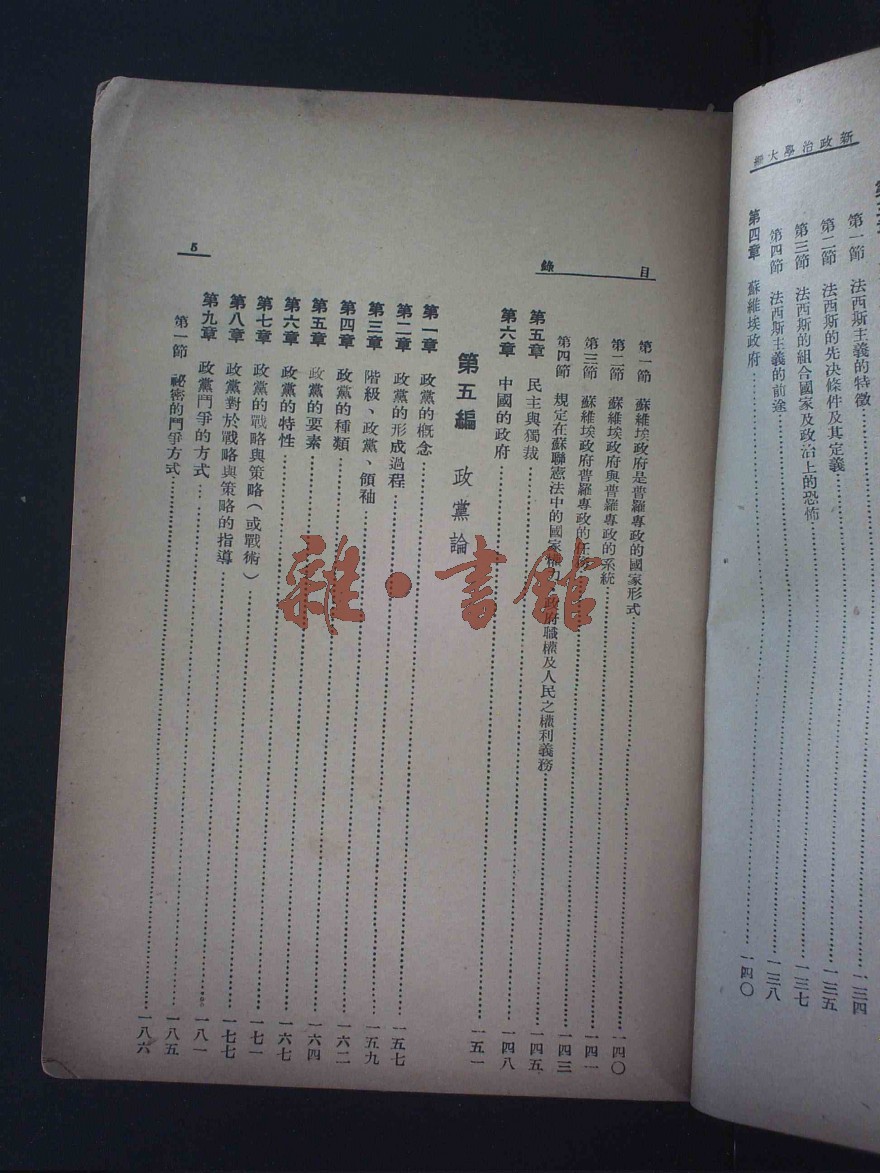 新政治學大綱
第一節 法西斯主義的特徵……一三四
第二節 法西斯的先決條件及其定義……一三五
第三節 法西斯的組合國家及政治上的恐怖……一三七
第四節 法西斯主義的前途……一三八
第四章 蘇維埃政府……一四〇
目錄
第一節 蘇維埃政府是普羅專政的國家形式……一四〇
第二節 蘇維埃政府與普羅專政的系統……一四一
第三節 蘇維埃政府普羅專政的任務……一四三
第四節 規定在蘇聯憲法中的國家權力、政府職權及人民之權利義務……一四五
第五章 民主與獨裁……一四八
第六章 中國的政府……一五一
第五編 政黨論
第一章 政黨的概念……一五七
第二章 政黨的形成過程……一五九
第三章 階級、政黨、領袖……一六二
第四章 政黨的種類……一六四
第五章 政黨的要素……一六七
第六章 政黨的特性……一七一
第七章 政黨的戰略與策略(或戰術)……一七七
第八章 政黨對於戰略與策略的指導……一八一
第九章 政黨鬥爭的方式……一八五
第一節 祕密的鬥爭方式……一八六
5
雜·書館